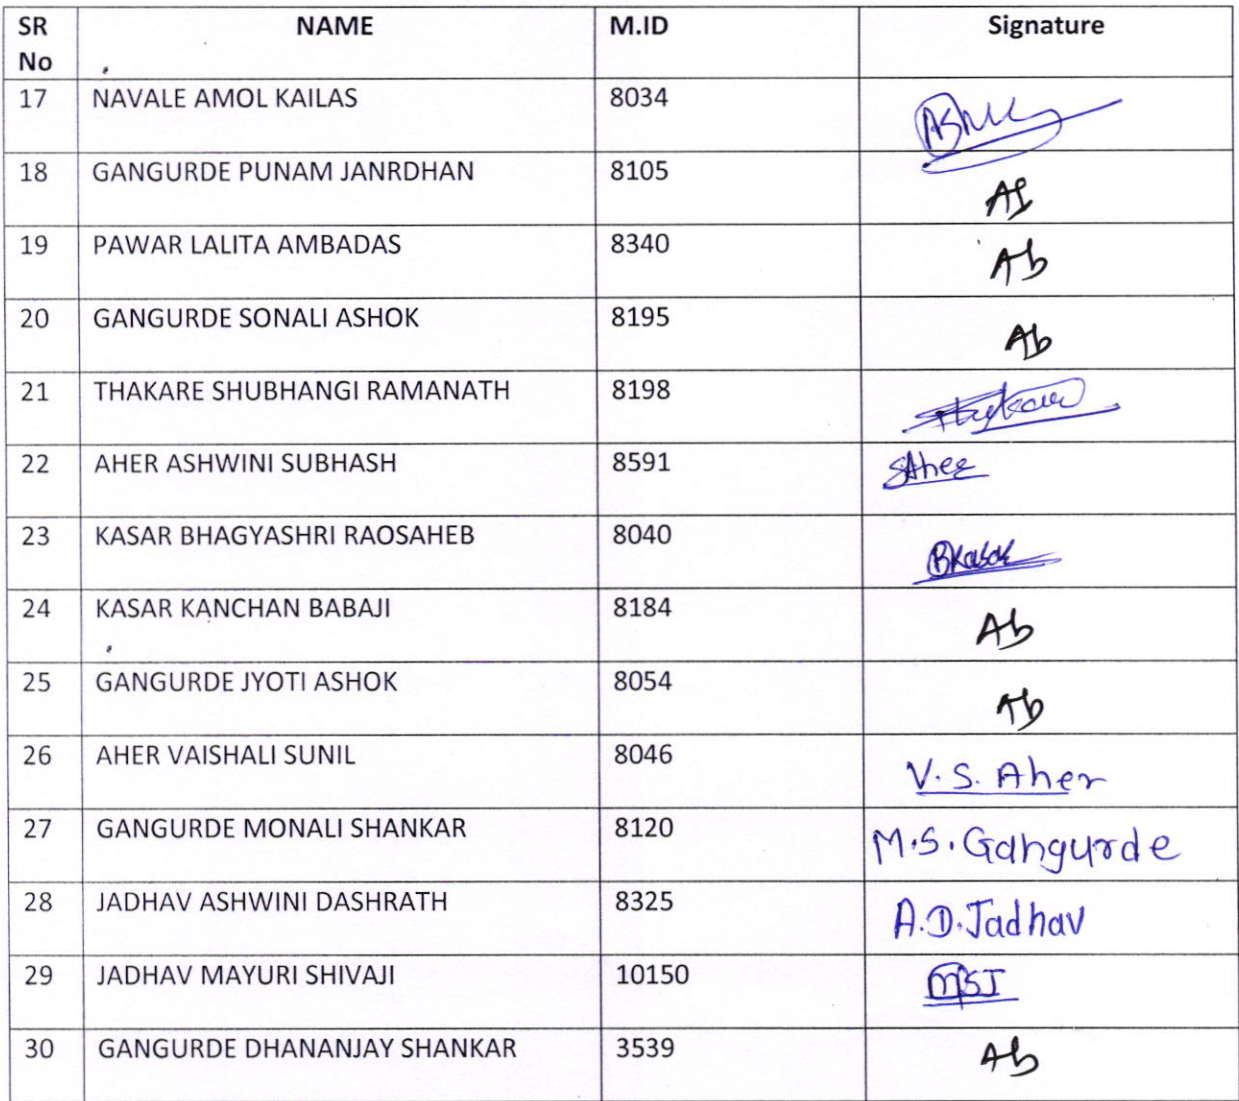 SR No NAME M.ID Signature
17 NAVALE AMOL KAILAS 8034
18 GANGURDE PUNAM JANRDHAN 8105
19 PAWAR LALITA AMBADAS 8340 Ab
20 GANGURDE SONALI ASHOK 8195 Ab
21 THAKARE SHUBHANGI RAMANATH 8198
22 AHER ASHWINI SUBHASH 8591
23 KASAR BHAGYASHRI RAOSAHEB 8040
24 KASAR KANCHAN BABAJI 8184 Ab
25 GANGURDE JYOTI ASHOK 8054 Ab
26 AHER VAISHALI SUNIL 8046 V.S. Aher
27 GANGURDE MONALI SHANKAR 8120 M.S. Gangurde
28 JADHAV ASHWINI DASHRATH 8325 A.D.Jadhav
29 JADHAV MAYURI SHIVAJI 10150 MSJ
30 GANGURDE DHANANJAY SHANKAR 3539 Ab